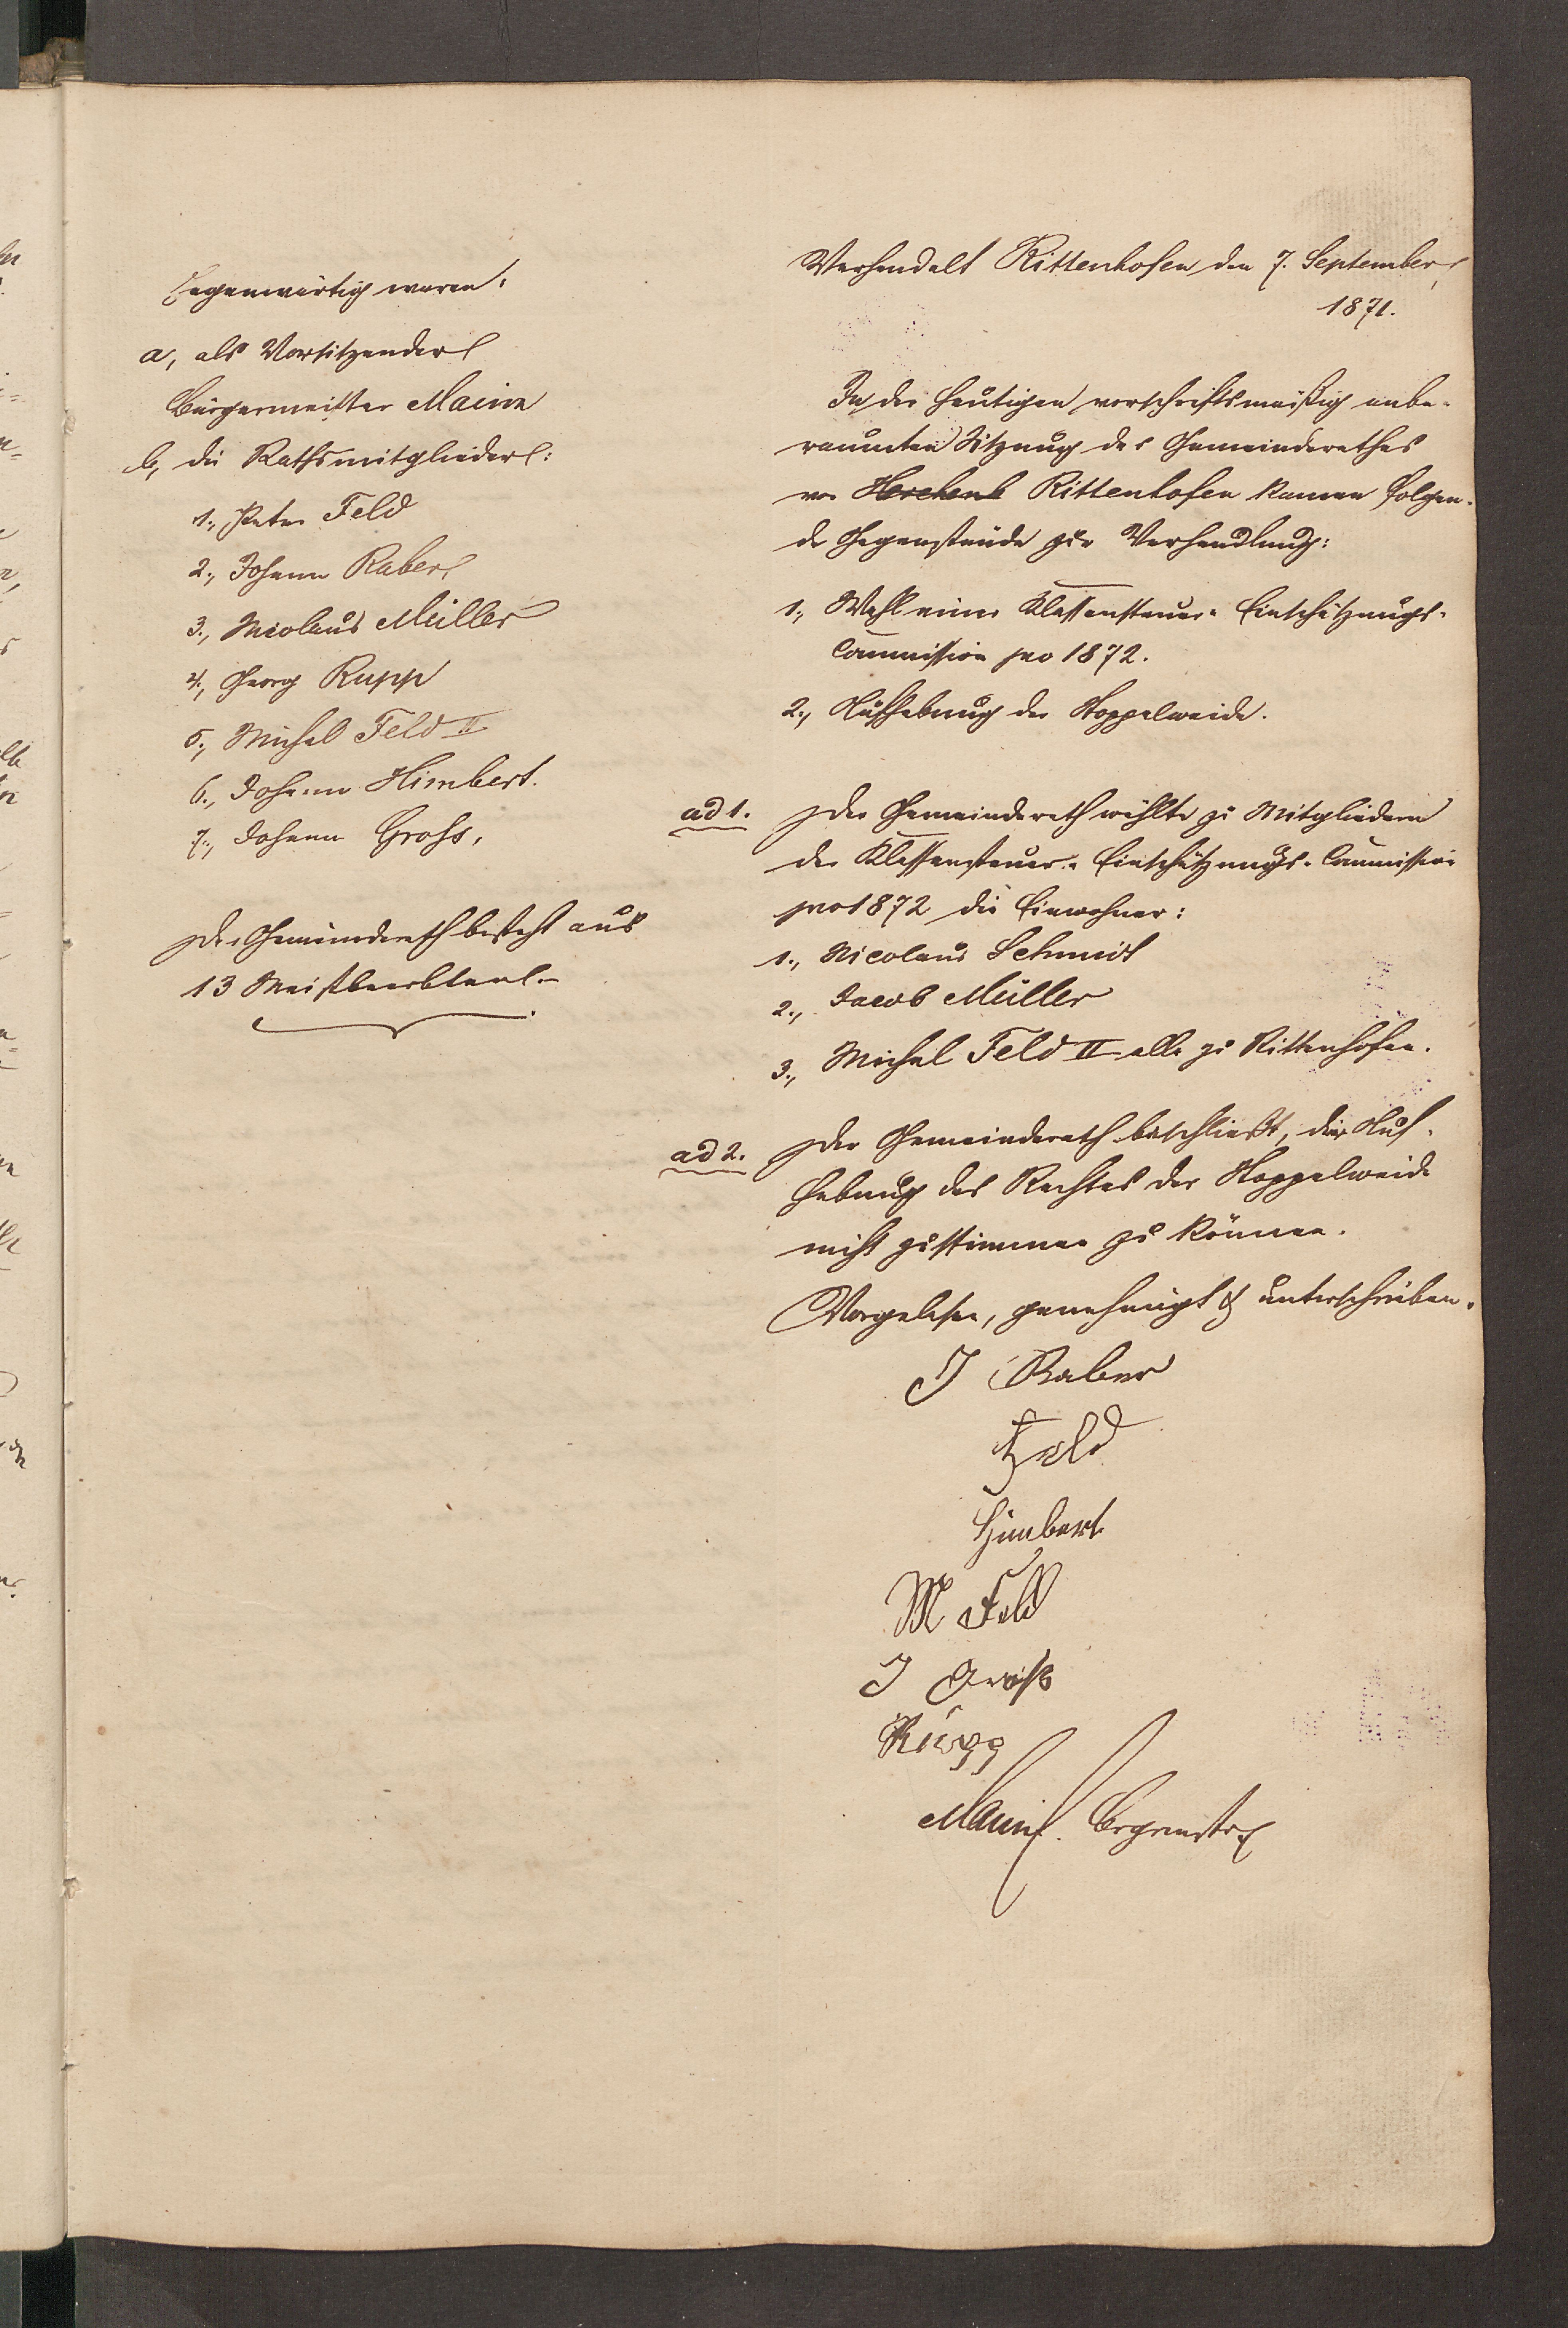 Gegenwärtig waren:
a, als Vorsitzender
Bürgermeister Maine
b, die Rathsmitglieder:
1., Peter Feld
2., Johann Raber
3., Nicolaus Müller
4., Georg Rupp
5., Michel Feld II
6., Johann Himbert.
7., Johann Grohs,
Der Gemeinderath besteht aus
13 Meistbeerbten.
Verhandelt Rittenhofen den 7. September
1871.
In der heutigen vorschriftsmäßig anbe-
raumten Sitzung des Gemeinderathes
von Herchenb Rittenhofen kamen folgen-
de Gegenstände zur Verhandlung:
1., Wahl einer Klassensteuer- Einschätzungs-
Commission pro 1872.
2., Aufhebung der Koppelweide.
ad 1. Der Gemeinderath wählte zu Mitgliedern
der Klassensteuer- Einschätzungs- Commission
pro 1872 die Einwohner:
1., Nicolaus Schmidt
2., Jacob Müller
3., Michel Feld II alle zu Rittenhofen.
ad 2. Der Gemeinderath beschließt, der Auf-
hebung des Rechtes der Koppelweide
nicht zustimmen zu können.
Vorgelesen, genehmigt & unterschrieben.
J Raber
Feld
Himbert
M Feld
J Groß
Rupp
Maine. Brgrmstr